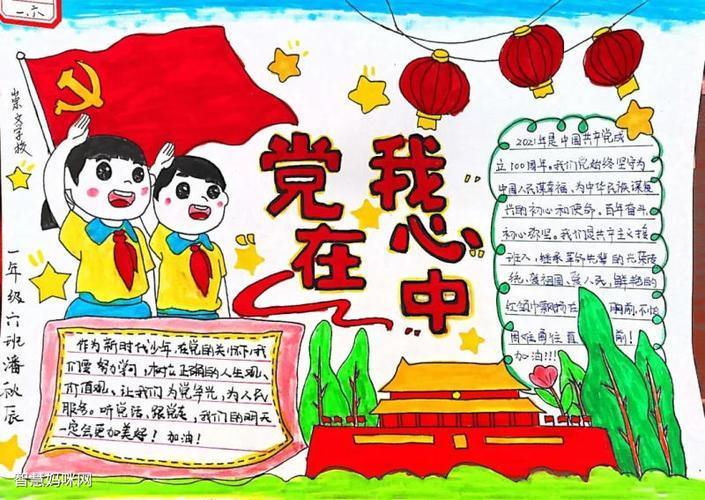 一.六
崇文学校
一年级六班潘秋辰
党在
我心中
2021年是中国共产党成
立100周年。我们党始终坚守为
中国人民谋幸福,为中华民族谋复
兴的初心和使命。百年奋斗,
初心弥坚。我们是共产主义接
班人,继承革命先辈的光荣传
统,爱祖国,爱人民,鲜艳的
红领巾飘扬在 胸前,不怕
困难勇往直 前!
加油!!!
作为新时代少年,在党的关怀下,我
们要努力学习,树立正确的人生观、
价值观、让我们为党争光,为人民
服务。听党话,跟党走,我们的明天
一定会更加美好!加油!
智慧妈咪网